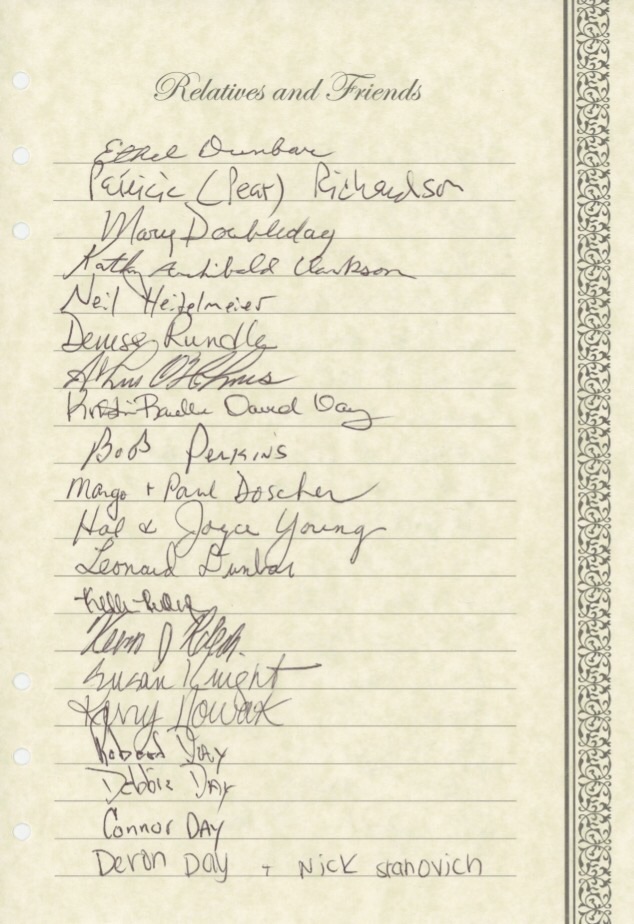 Relatives and Friends
Ethel Dunbar
Patricia (Peat) Richardson
Mary Doubleday
Kathy Archibald Clarkson
Neil Heifelmeier
Denise Rundle
Kristin David Day
Bob Perkins
Margo + Paul Doscher
Hal & Joyce Young
Leonard Dunbar
J
Susan Knight
Kerry Nowak
Day
Debbie Day
Connor DAY
Devon Day + Nick Stanovich